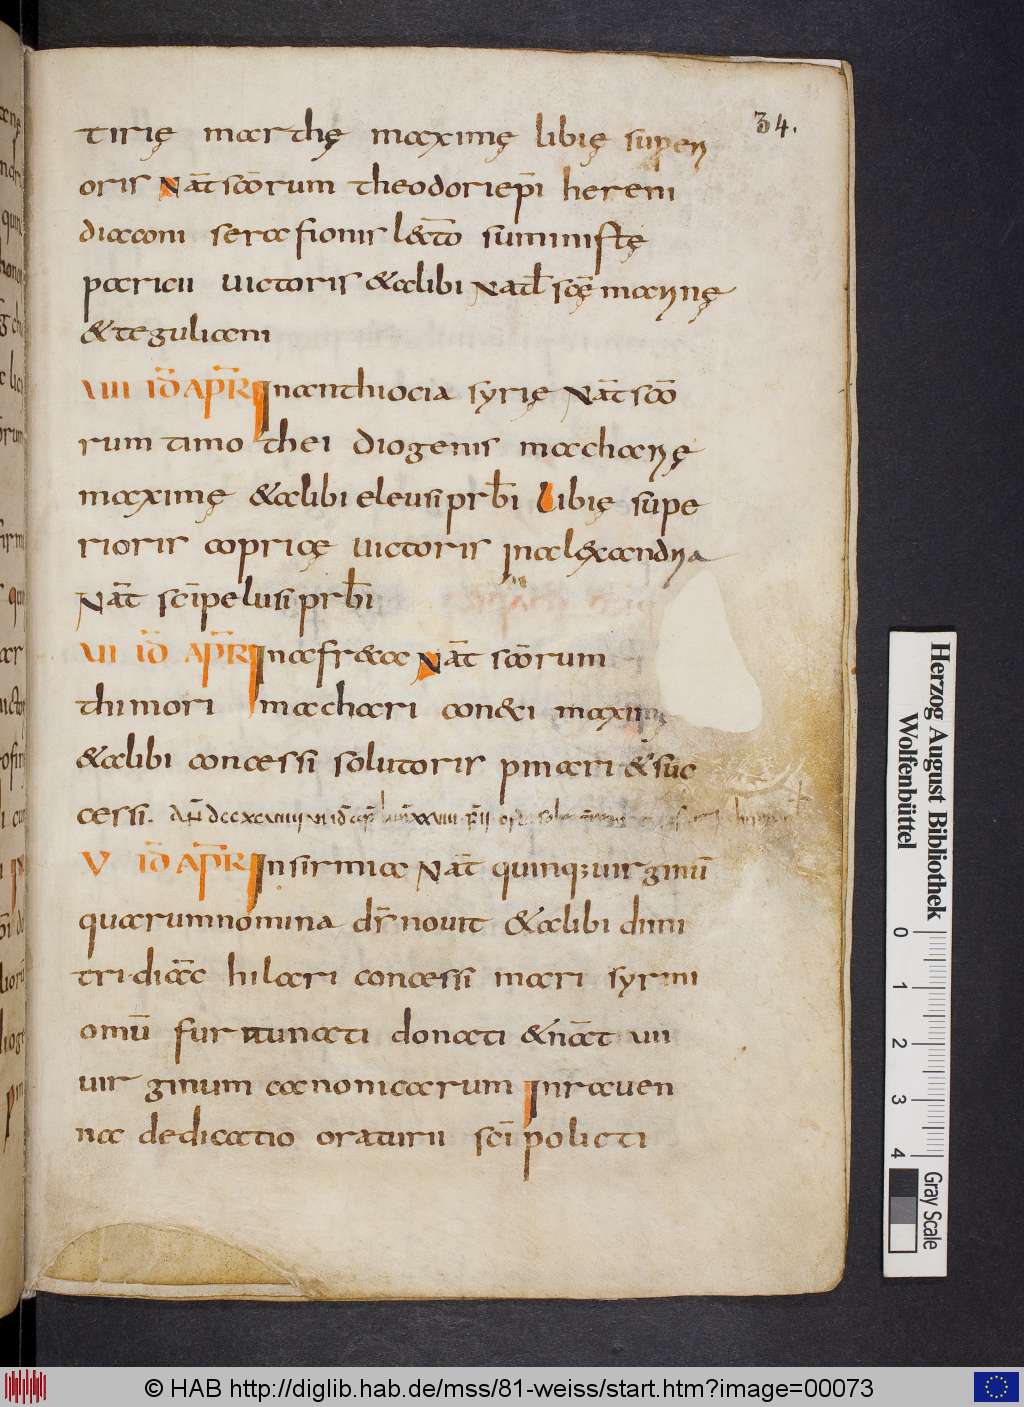 34.
tirię marthę maximę libię superi
oris Nat̄ scōrum theodori ep̄i hereni
diaconi serafionis lect̄o summistę
paricii uictoris &alibi Natl̄ scę marinę
&teguliani
VIII ID̄ AP̄R Inanthiocia syrię Nat̄ scō
rum timo thei diogenis macharię
maximę &alibi eleusi prb̄i libię supe
rioris copricę uictoris Inalęxandria
Nat̄ scī pelusi prb̄i
VII ID̄ AP̄R Inafr&ca Nat̄ scōrum
thimori machari con&i
&alibi concessi solutoris pmari &suc
cessi. AN̄ dccxcviiii vi id̄ ap̄
V ID̄ AP̄R Insirmia Nat̄ quinq; uirginū
quarumnomina dr̄ nouit &alibi dimi
tri diac̄ hilari concessi mari syrini
omū furntunati donati &nat̄ uii
uirginum canonicarum Inrauen
na dedicatio oraturii scī policti
Herzog August Bibliothek
Wolfenbüttel
0 1 2 3 4
Gray Scale
© HAB http://diglib.hab.de/mss/81-weiss/start.htm?image=00073